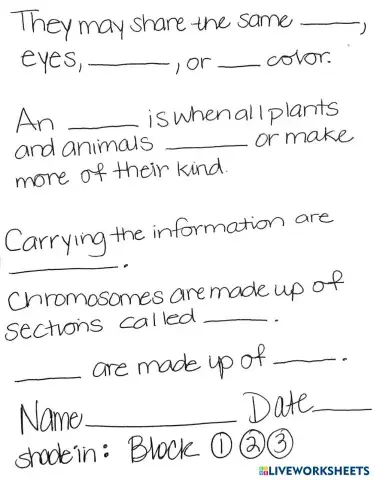 They may share the same _____,
eyes, _______, or ____ color.
An ______ is when all plants
and animals _______ or make
more of their kind.
Carrying the information are
_________.
Chromosomes are made up of
sections called _____.
_____ are made up of _____.
Name____________ Date_____
shade in: Block ① ② ③
LIVEWORKSHEETS